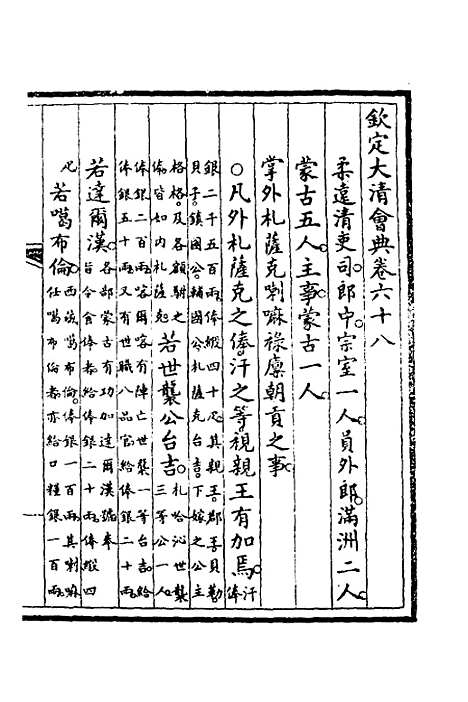 欽定大清會典卷六十八
柔遠清吏司。郎中。宗室一人。員外郎。滿洲二人。
蒙古五人。主事。蒙古一人。
掌外札薩克喇嘛祿廩朝貢之事。
○凡外札薩克之俸。汗之等。視親王有加焉。汗俸
銀二千五百兩。俸緞四十疋。其親王。郡王。貝勒。
貝子。鎮國公。輔國公。札薩克台吉。下嫁之公主
格格。及各額駙之俸。皆如內札薩克。若世襲公台吉。札哈沁世襲三等公一人。
俸銀二百兩。喀爾喀有陣亡世襲一等台吉。給
俸銀五十兩。又有世職八品官。給俸銀二十兩。
若達爾漢。各部蒙古有功加達爾漢號。奉旨令食俸者。給俸銀二十兩。俸緞四
疋。若噶布倫。西藏噶布倫。俸銀一百兩。其喇嘛任噶布倫者。亦給口糧銀一百兩。